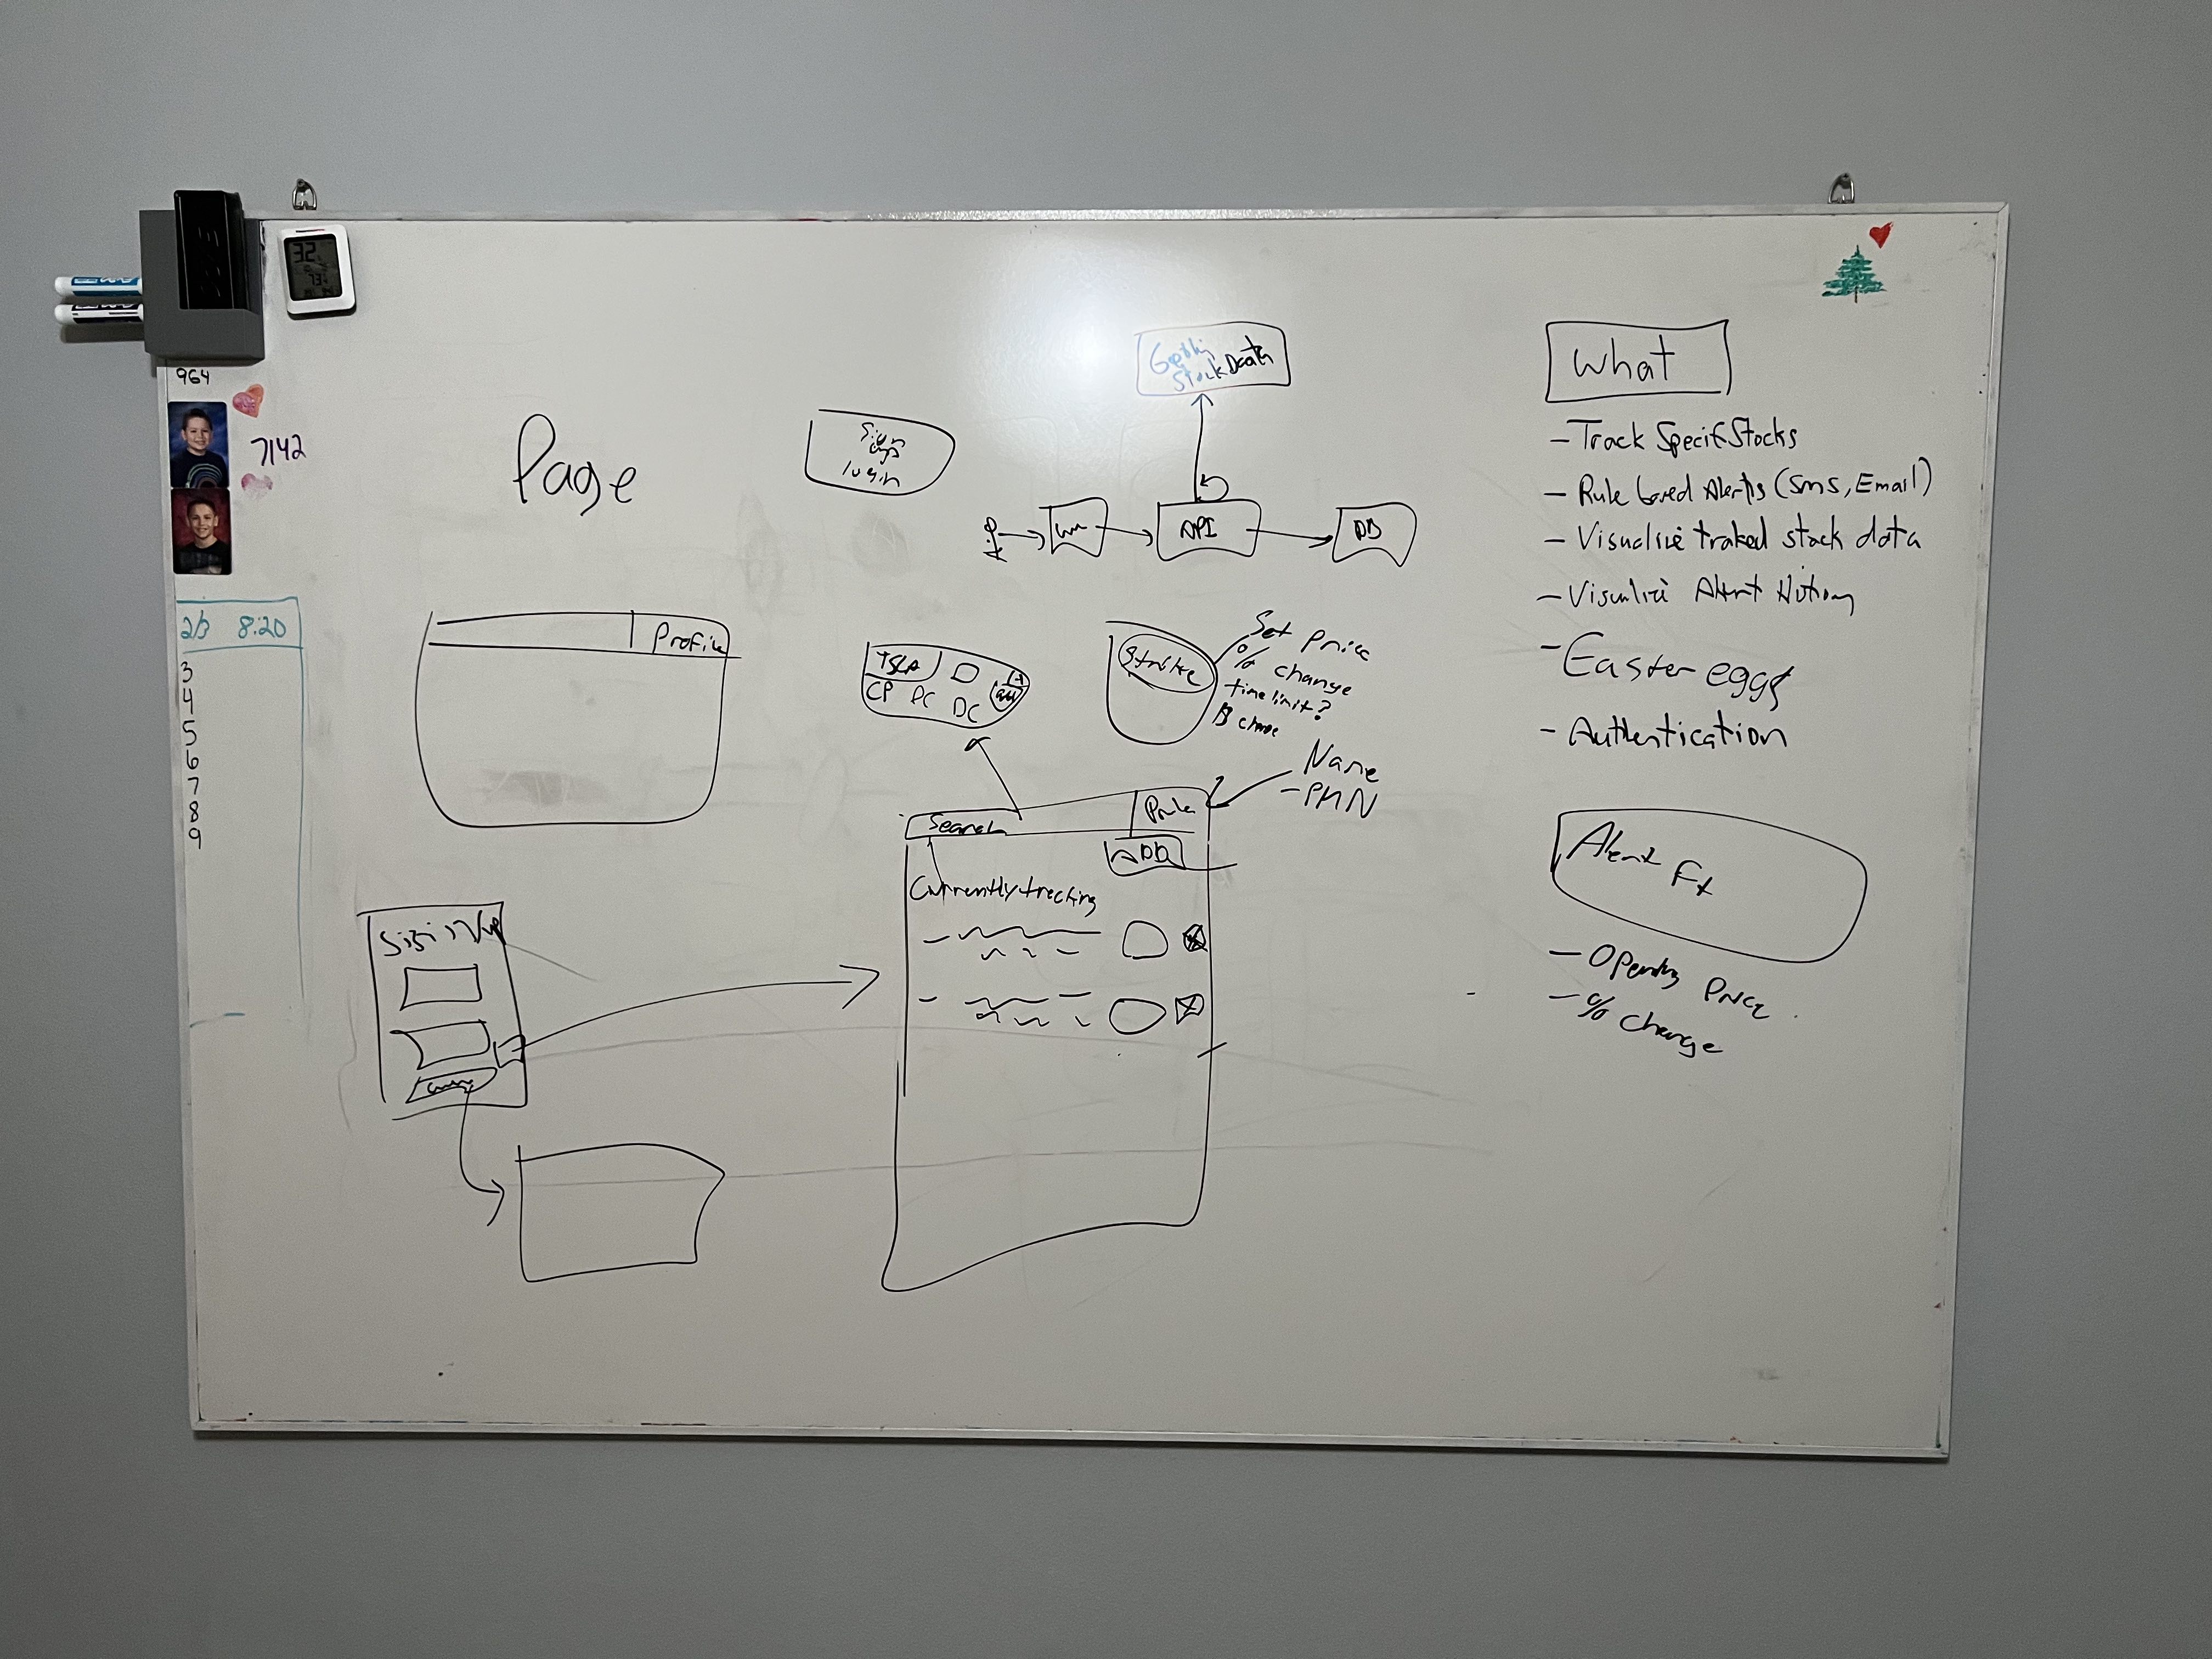 32
73
964
7142
2/3 8:20
3
4
5
6
7
8
9
Page
Sign
up
login
Stock Data
API
DB
Profile
TSLA
CP PC DC
Strike
Set Price
% change
time limit?
$ change
Name
- PHN
Search
ADD
Currently tracking
Sign in/up
What
- Track Specif Stocks
- Rule based Alerts (SMS, Email)
- Visualize traked stock data
- Visualize Alert History
- Easter eggs
- Authentication
Alert Fx
- Opening Price
- % change